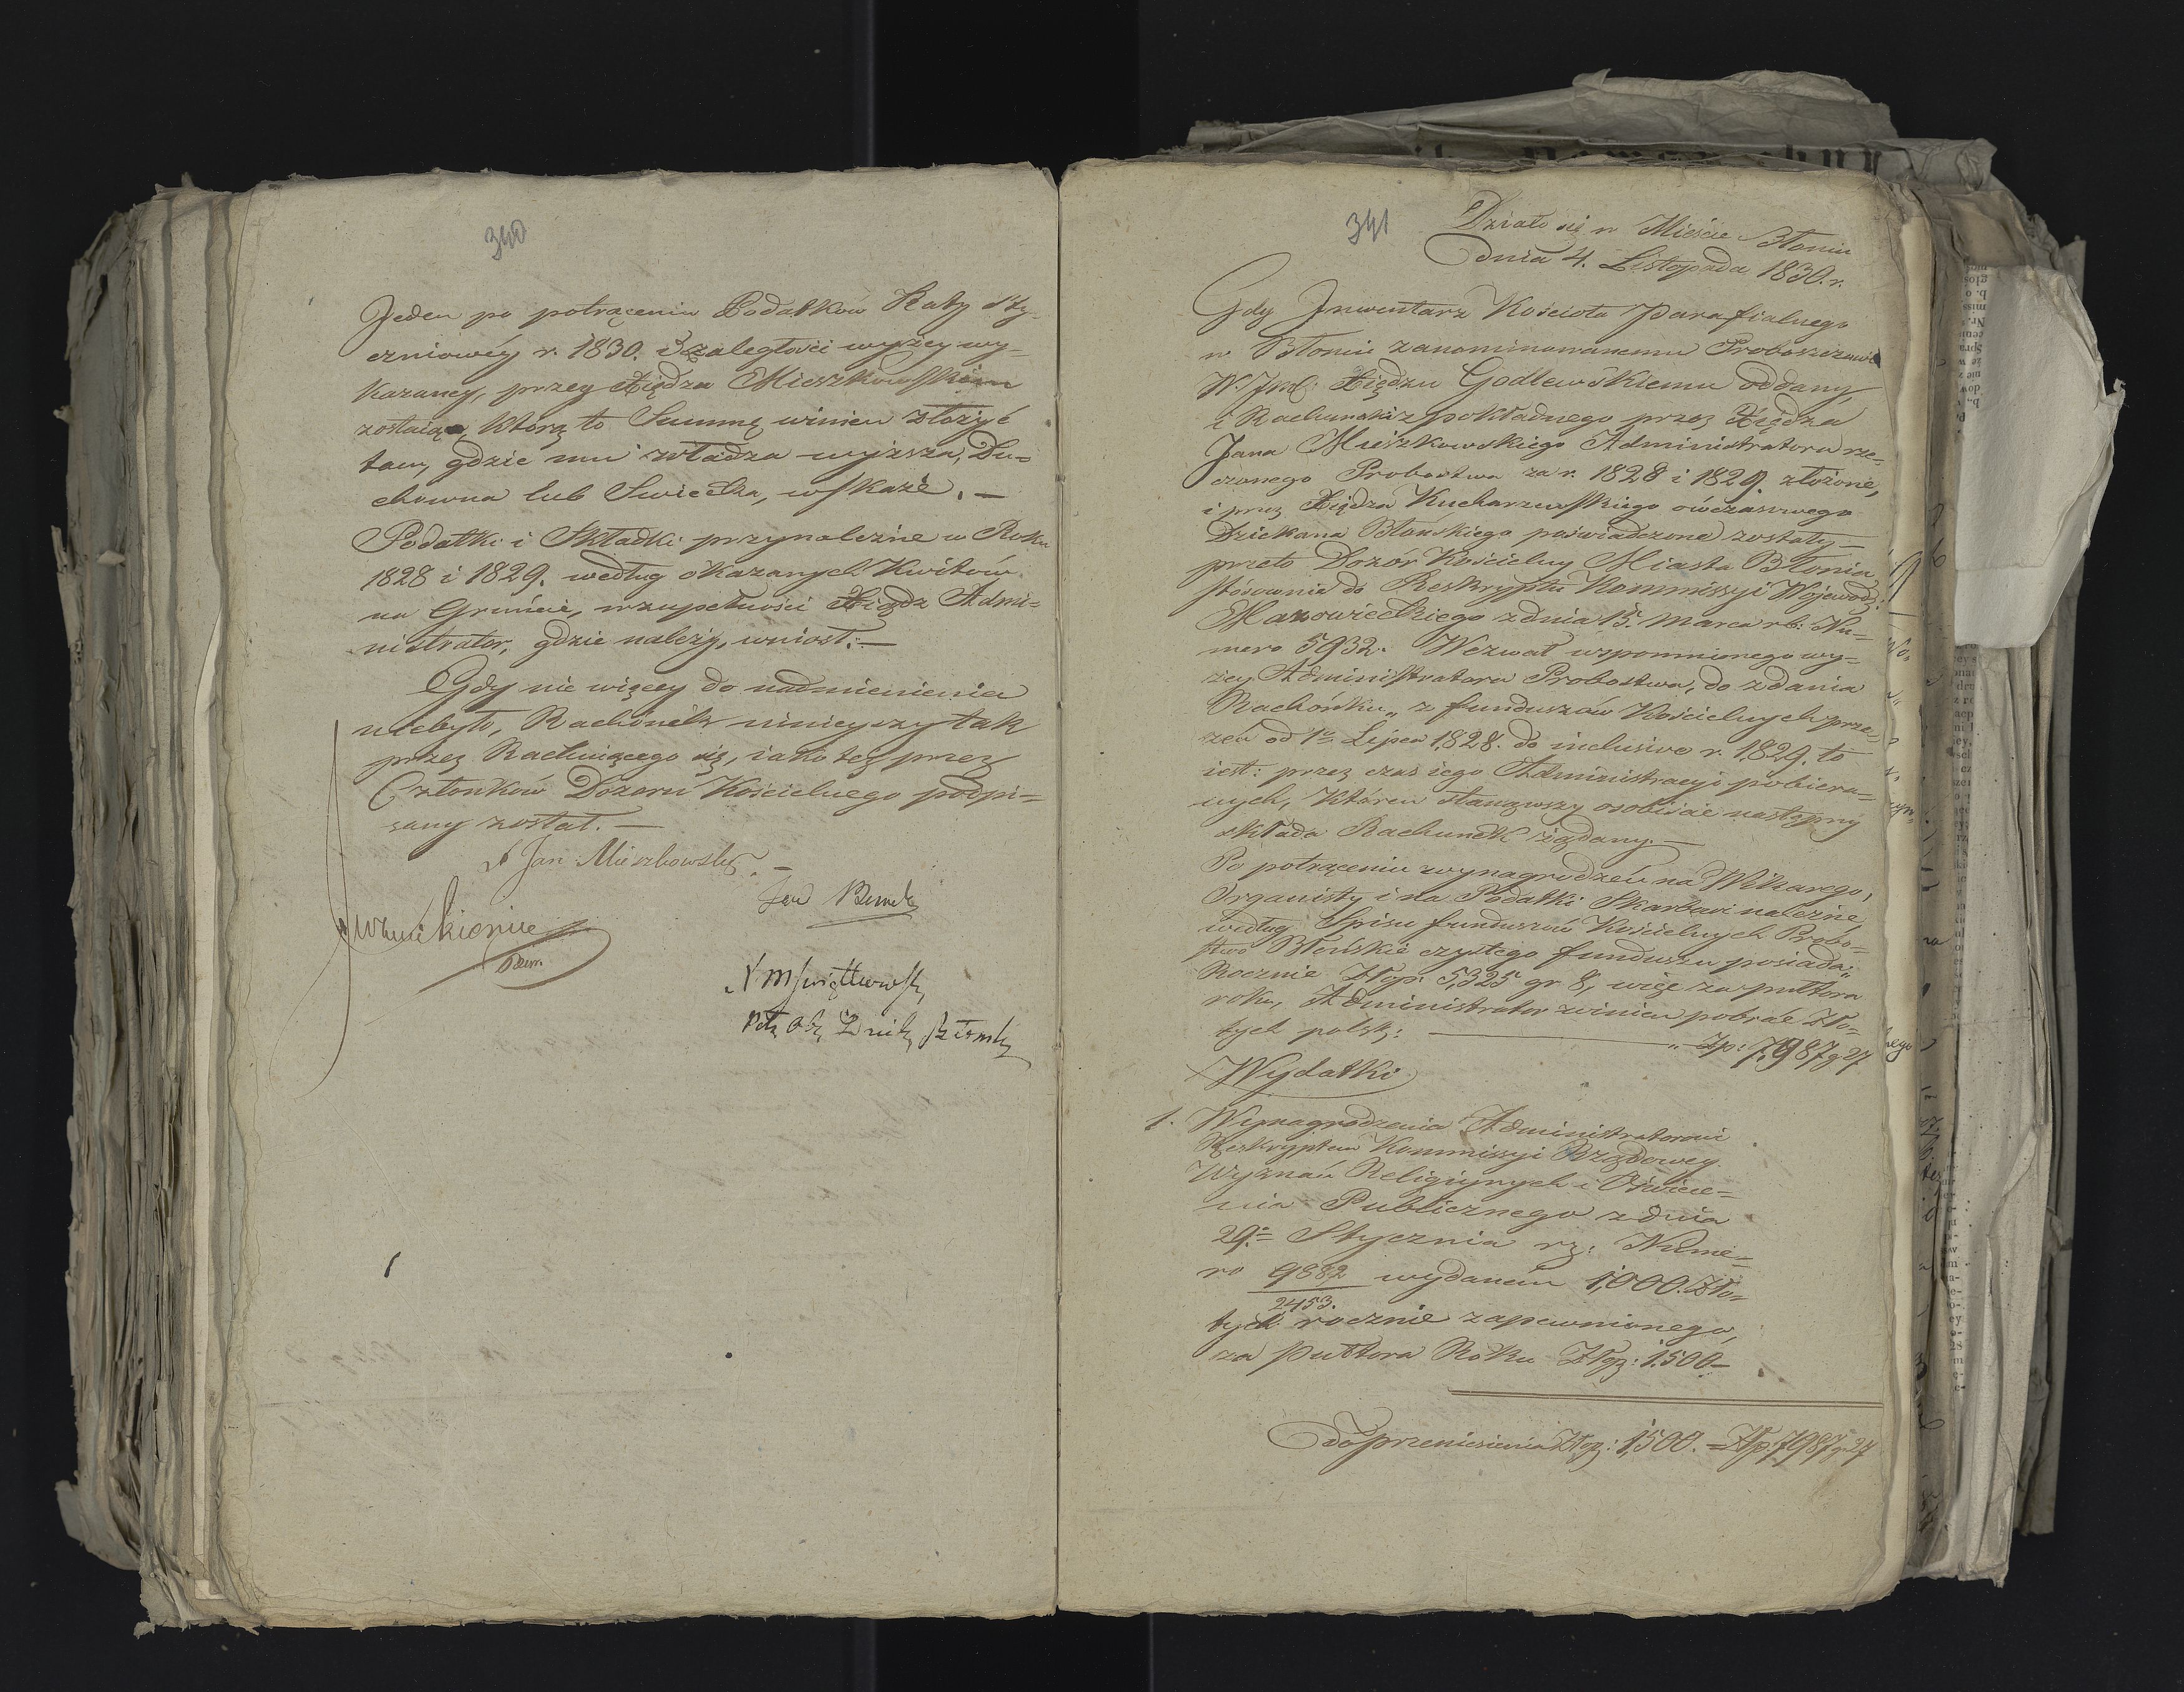 340
Jeden po potrąceniu Podatków Raty Sty-
czniowéy r. 1830. i zaległości wyżey wy-
kazaney, przez Xiędza Mieszkowskiem
zostaiąca, którą to Summę winien złożyć
tam, gdzie mu władza wyższa, Du-
chowna lub Swiecka, wskaże. —
Podatki i Składki przynależne w Roku
1828 i 1829. według okazanych Kwitów
na Gruncie, w zupełności Xiądz Admi-
nistrator, gdzie należy, wniosł. —
Gdy nic więcey do nadmienienia
niebyło, Rachunek ninieyszy tak
przez Rachuiącego się, iako też przez
Członków Dozoru Kościelnego podpi-
sany został. —
X Jan Mieszkowski. —
341
Działo się w Mieście Błoniu
dnia 4. Listopada 1830. r.
Gdy Inwentarz Kościoła Parafialnego
w Błoniu zanominowanemu Proboszczowi
W. Jmć: Xiędzu Godlewskiemu oddany,
i Rachunki z pokładnego przez Xiędza
Jana Mieszkowskiego Administratora rze-
czonego Probostwa za r. 1828 i 1829. złożone,
i przez Xiędza Kucharzewskiego ówczasowego
Dziekana Błońskiego poświadczone zostały,—
przeto Dozór Kościelny Miasta Błonia
stósownie do Reskryptu Kommissyi Wojewodz:
Mazowieckiego z dnia 15. Marca rb: Nu-
mero 5932. Wezwał wspomnionego wy-
żey Administratora Probostwa, do zdania
Rachónku„ z funduszów Kościelnych prze-
zeń od 1o Lipca 1828. do inclusive r. 1829. to
iest: przez czas iego Administracyi pobiera-
nych, któren stanąwszy osobiście następny
składa Rachunek żądany. —
Po potrąceniu wynagrodzeń na Wikarego,
Organisty i na Podatki Skarbowi należne
według Spisu funduszów Kościelnych Probo-
stwo Błońskie czystego funduszu posiada„
Rocznie Złop: 5,325 gr 8, więc za pułtora
roku, Administrator winien pobrać Zło-
tych polsk: — „ Zp: 7,987 g 27
Wydatki
1. Wynagrodzenia Administratorowi
Reskryptem Kommissyi Rządowey
Wyznań Religiynych i Oświece-
nia Publicznego z dnia
29.= Stycznia rz: Nume-
ro 9882 wydanem 1,000. Zło-
2453.
tych rocznie zapewnionego,
za pułtora Roku Złop: 1500 —
do przeniesienia Złop: 1,500. — Zp: 7987 g 27